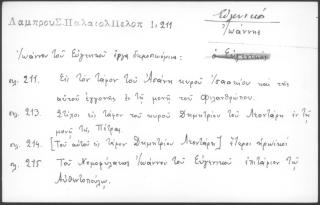 Λαμπρου Σ. Παλαιολ Πελοπ 1, 211
Εὐγενικός
Ἰωάννης
ὁ Εὐγενικός
Ἰωάννου τοῦ Εὐγενικοῦ ἔργα δημοσιευμένα:
σελ. 211. Εἰς τὸν τάφον τοῦ Ἀσάνη κυροῦ Ἰσαακίου καὶ τῆς
αὐτοῦ ἐγγόνης ἐν τῇ μονῇ τοῦ Φιλανθρώπου.
σελ. 213. Στίχοι εἰς τάφον τοῦ κυροῦ Δημητρίου τοῦ Λεοντάρη ἐν τῇ
μονῇ τῆς Πέτρας
σελ. 214. [Τοῦ αὐτοῦ εἰς τάφον Δημητρίου Λεοντάρη] ἕτεροι ἡρωϊκοί
σελ. 215 Τοῦ Νομοφύλακος Ἰωάννου τοῦ Εὐγενικοῦ ἐπιτάφιον τῷ
Αὐθεντοπούλῳ.